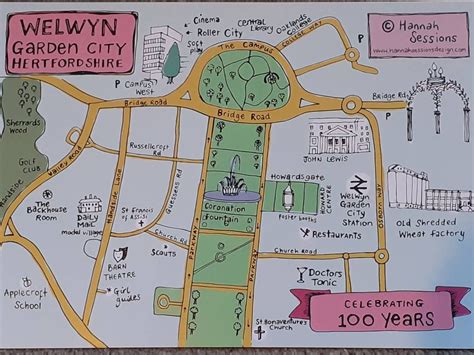 WELWYN
GARDEN CITY
HERTFORDSHIRE
Cinema
Roller City
Soft play
Central
Library
Oaklands
College
College Way
© Hannah
Sessions
www.hannahsessionsdesign.com
The Campus
P
Campus
West
P
Bridge Road
Bridge Road
Bridge Rd
P
Sherrards
Wood
Golf
Club
Valley Road
Russellcroft
Rd
JOHN LEWIS
Handside Lane
Guessens Rd
Howardsgate
HOWARD
CENTRE
Welwyn
Garden
City
Station
Osborn Way
Old Shredded
Wheat Factory
The
Backhouse
Room
DAILY
MAIL
model village
St Francis
of Assisi
Coronation
fountain
Poster booths
Restaurants
Church Rd
Church Road
Scouts
Parkway
Parkway
BARN
THEATRE
Girl
guides
Applecroft
School
Doctors
Tonic
St Bonaventure's
Church
CELEBRATING
100 YEARS